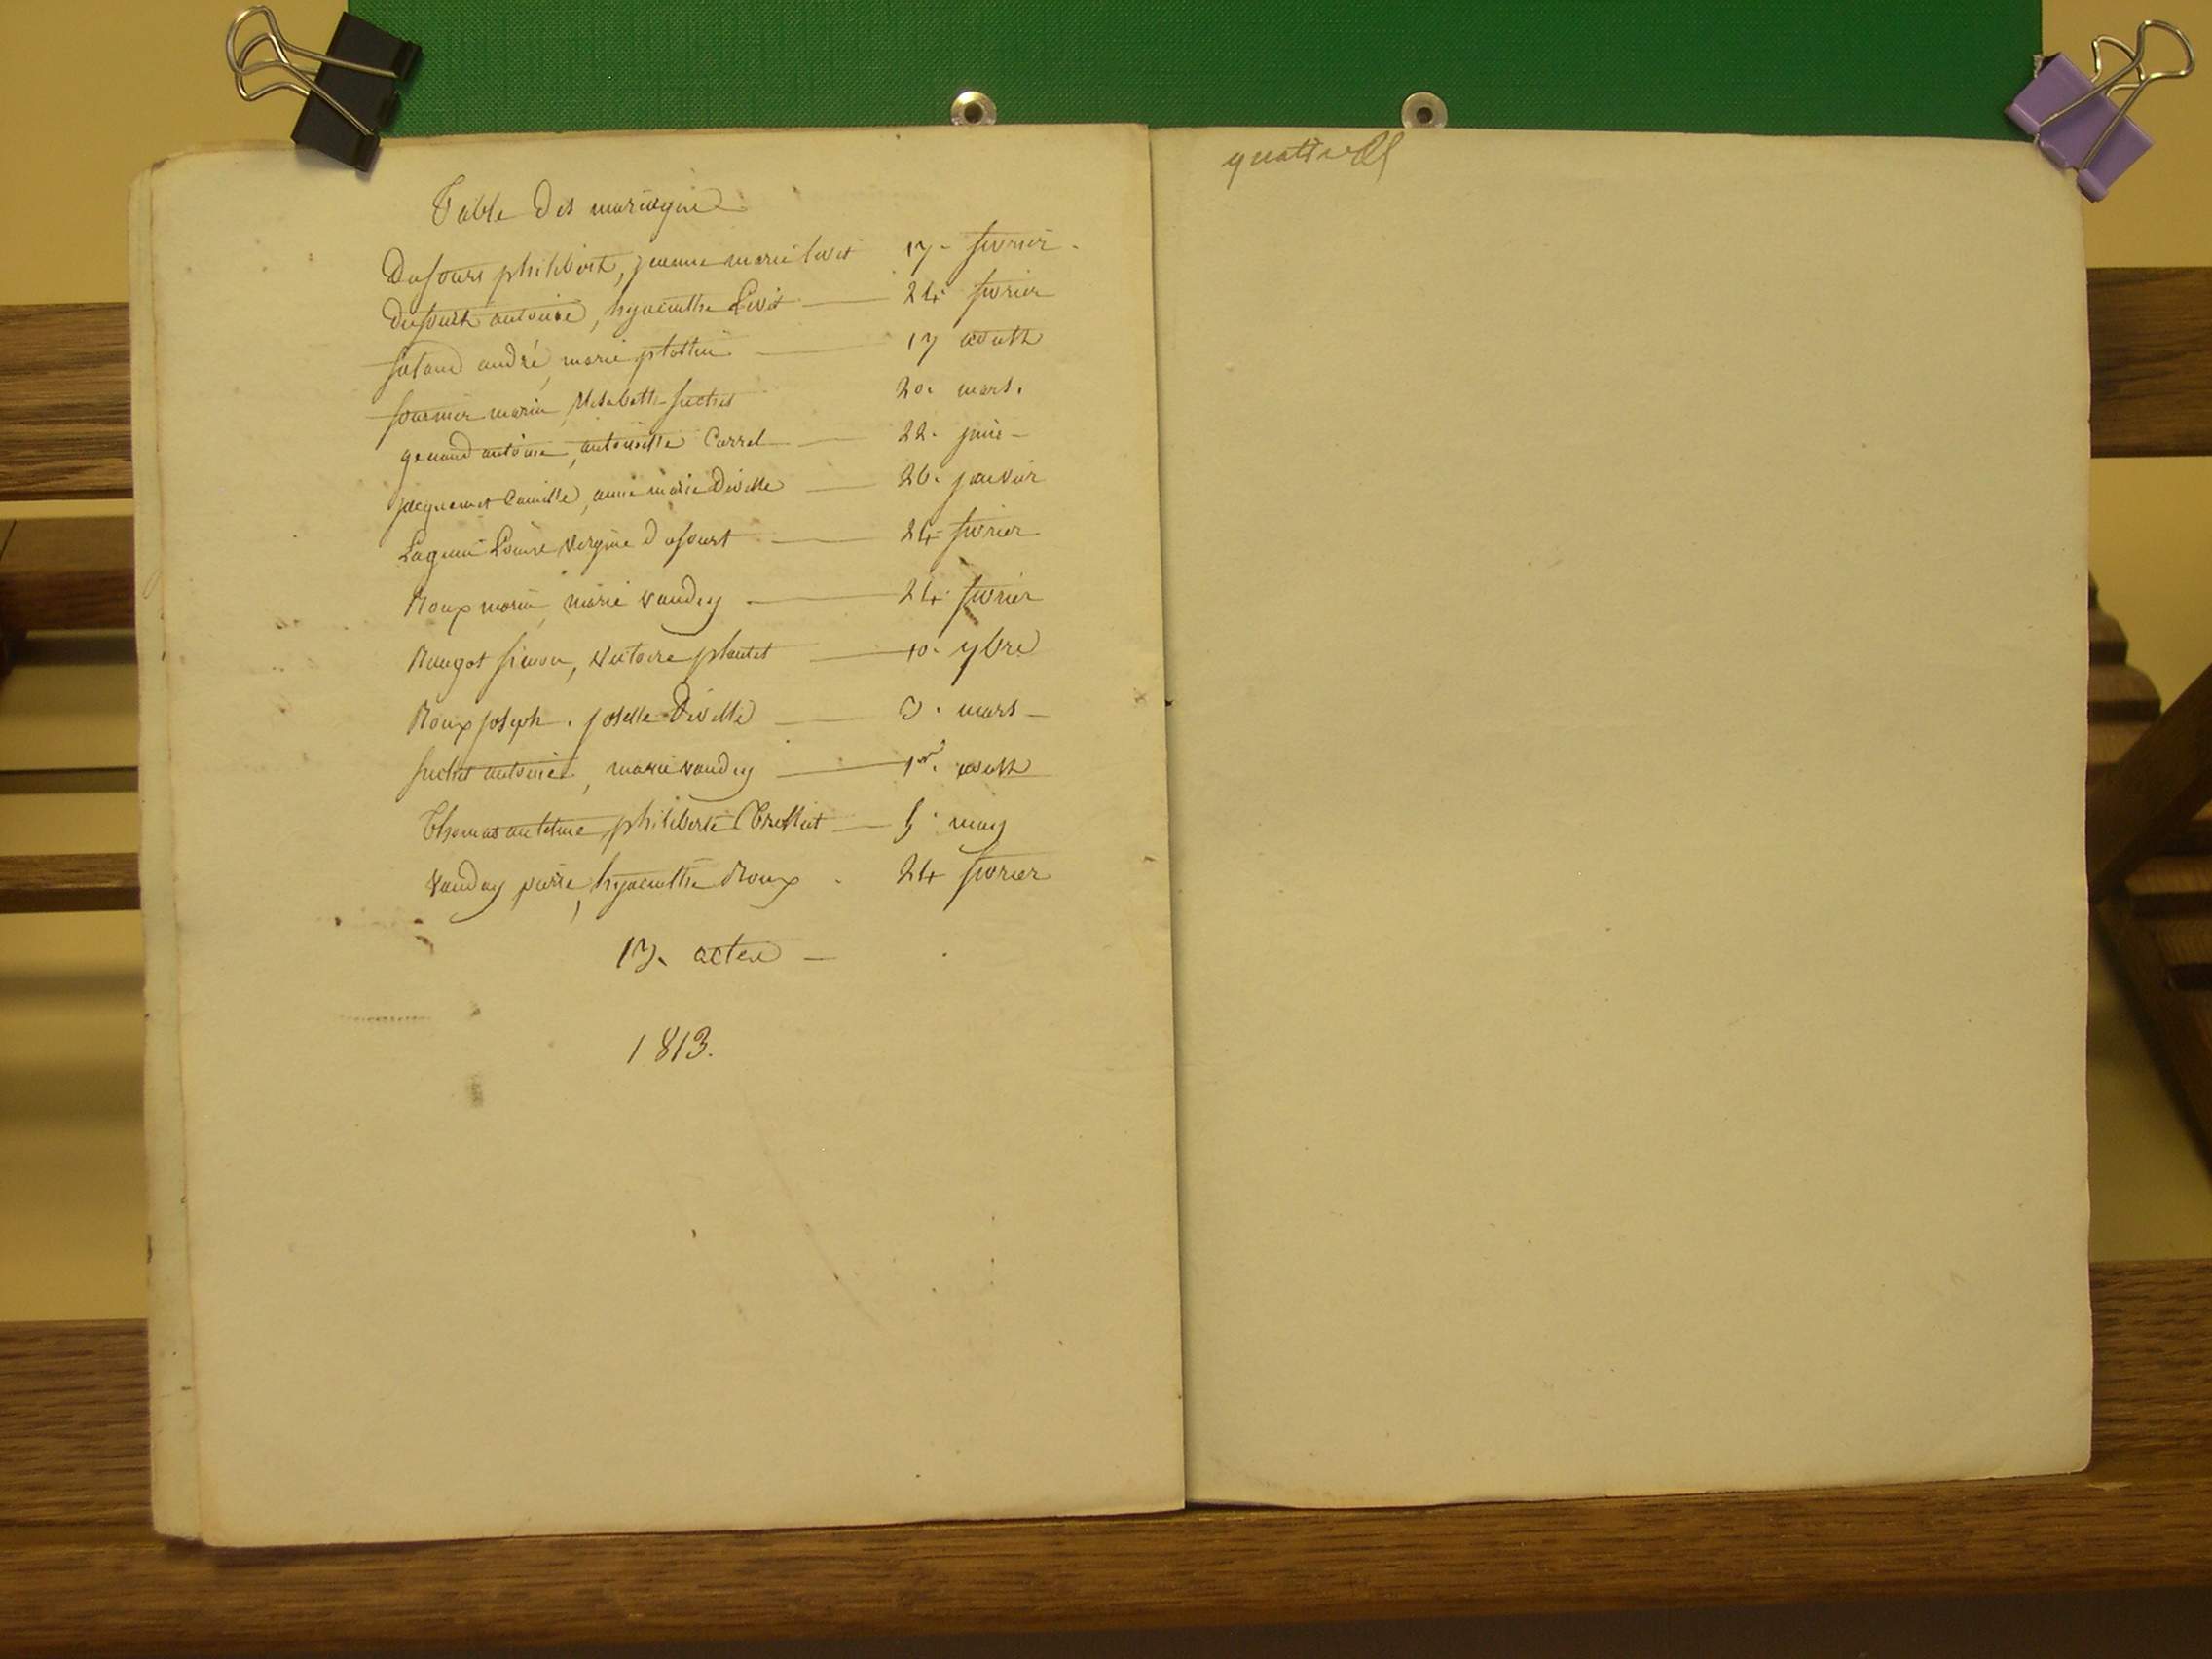 Table des mariages
Dufours philibert, jeanne marie livet 17. fevrier.
dufourt antoine, hyacinthe Livet 24 fevrier
andré marie plottin 17 aoust
fournier marin, Elisabeth suchet 20. mars.
genaud antoine, antoinette Carrel 22. juin
jacquemet Camille, anne marie Deville 26. janvier
Virginie dufourt 24 fevrier
Roux marin, marie vaudey 24. fevrier
simon, victoire plantet 10. 9bre
Roux joseph. josette Deville 3. mars
suchet antoine, marie vaudey 1er. aoust
Thomas antoine philiberte 5. may
vaudey pierre, hyacinthe Roux 24 fevrier
13. actes
1813.